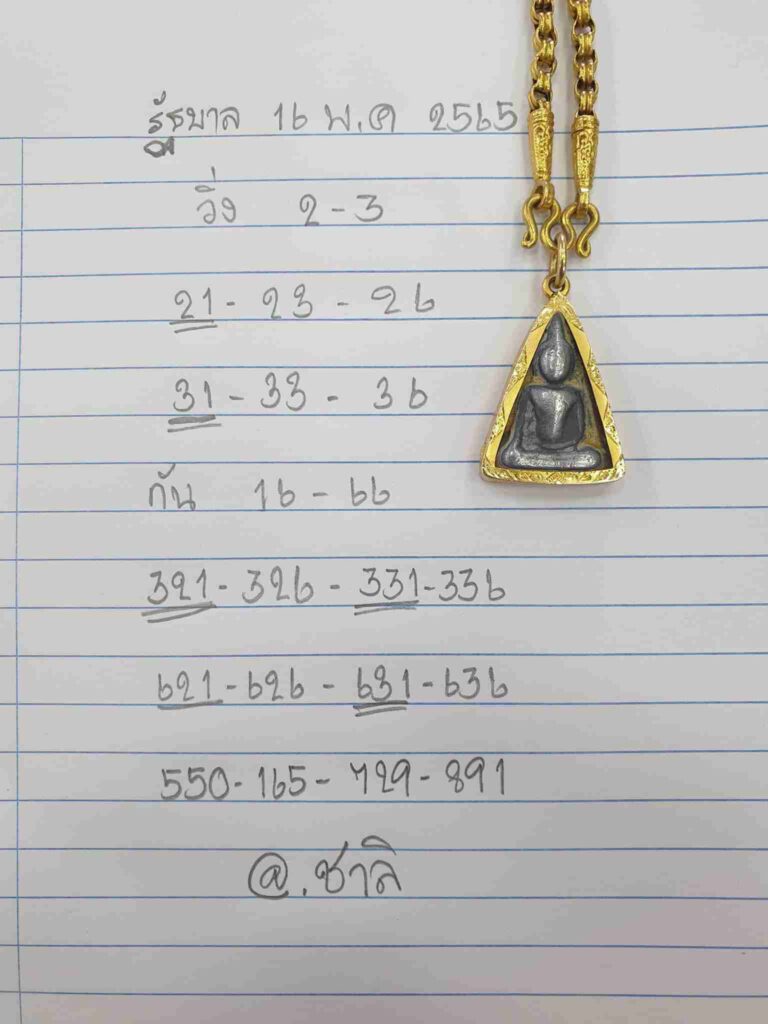 รัฐบาล 16 พ.ค 2565
วิ่ง 2-3
21-23-26
31-33-36
กัน 16-66
321-326-331-336
621-626-631-636
550-165-729-891
@.ชาลิ